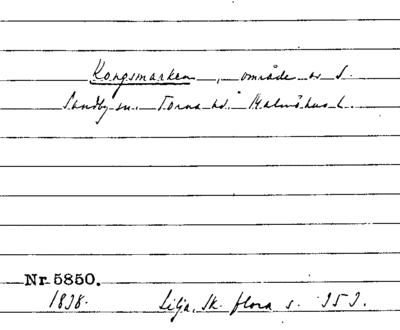 Kongsmarken, område av S.
Sandby sn. Torna hd. Malmöhus l.
Nr 5850.
1838. Lilja, Sk. flora s. 353.